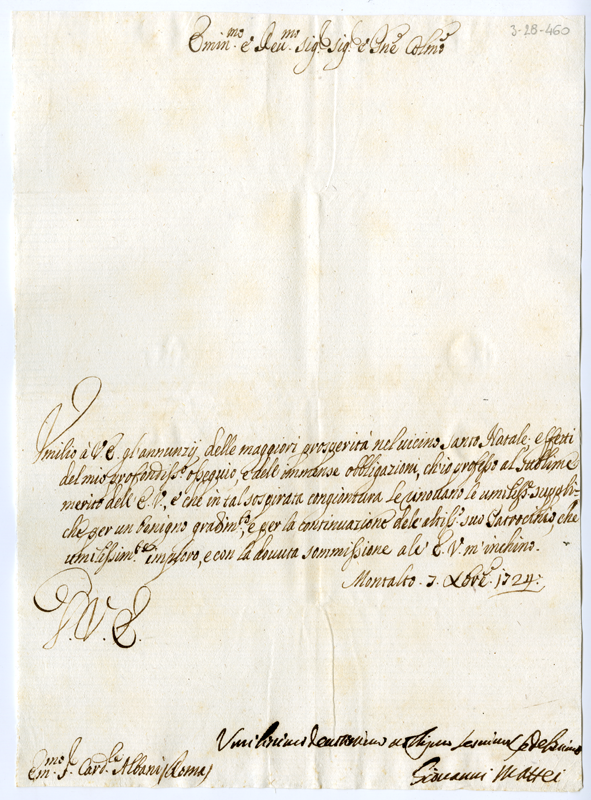 3-28-460
Emin.mo e Reu.mo Sig.r Sig.r e Pne Colmo
Vmilio à V. E. gl'annunzij delle maggiori prosperità nel uicino Santo Natale effetti
del mio profondiss.o ossequio, e dele immense obbligazioni, ch'io professo al sublime
merito dele E. V., e che in tal sospirata congiontura le rinouano le umiliss.e suppli-
che per un benigno gradim.to, e per la continuazione dele suo Patrocinio, che
umilissim.te imploro, e con la douuta sommissione ale E. V. m'inchino.
Montalto 7. Xbre. 1724:
V. E.
Vmilissimo Deuotissimo Seruitore
Giouanni Mattei
Em.mo S. Card.le Albani (Roma)